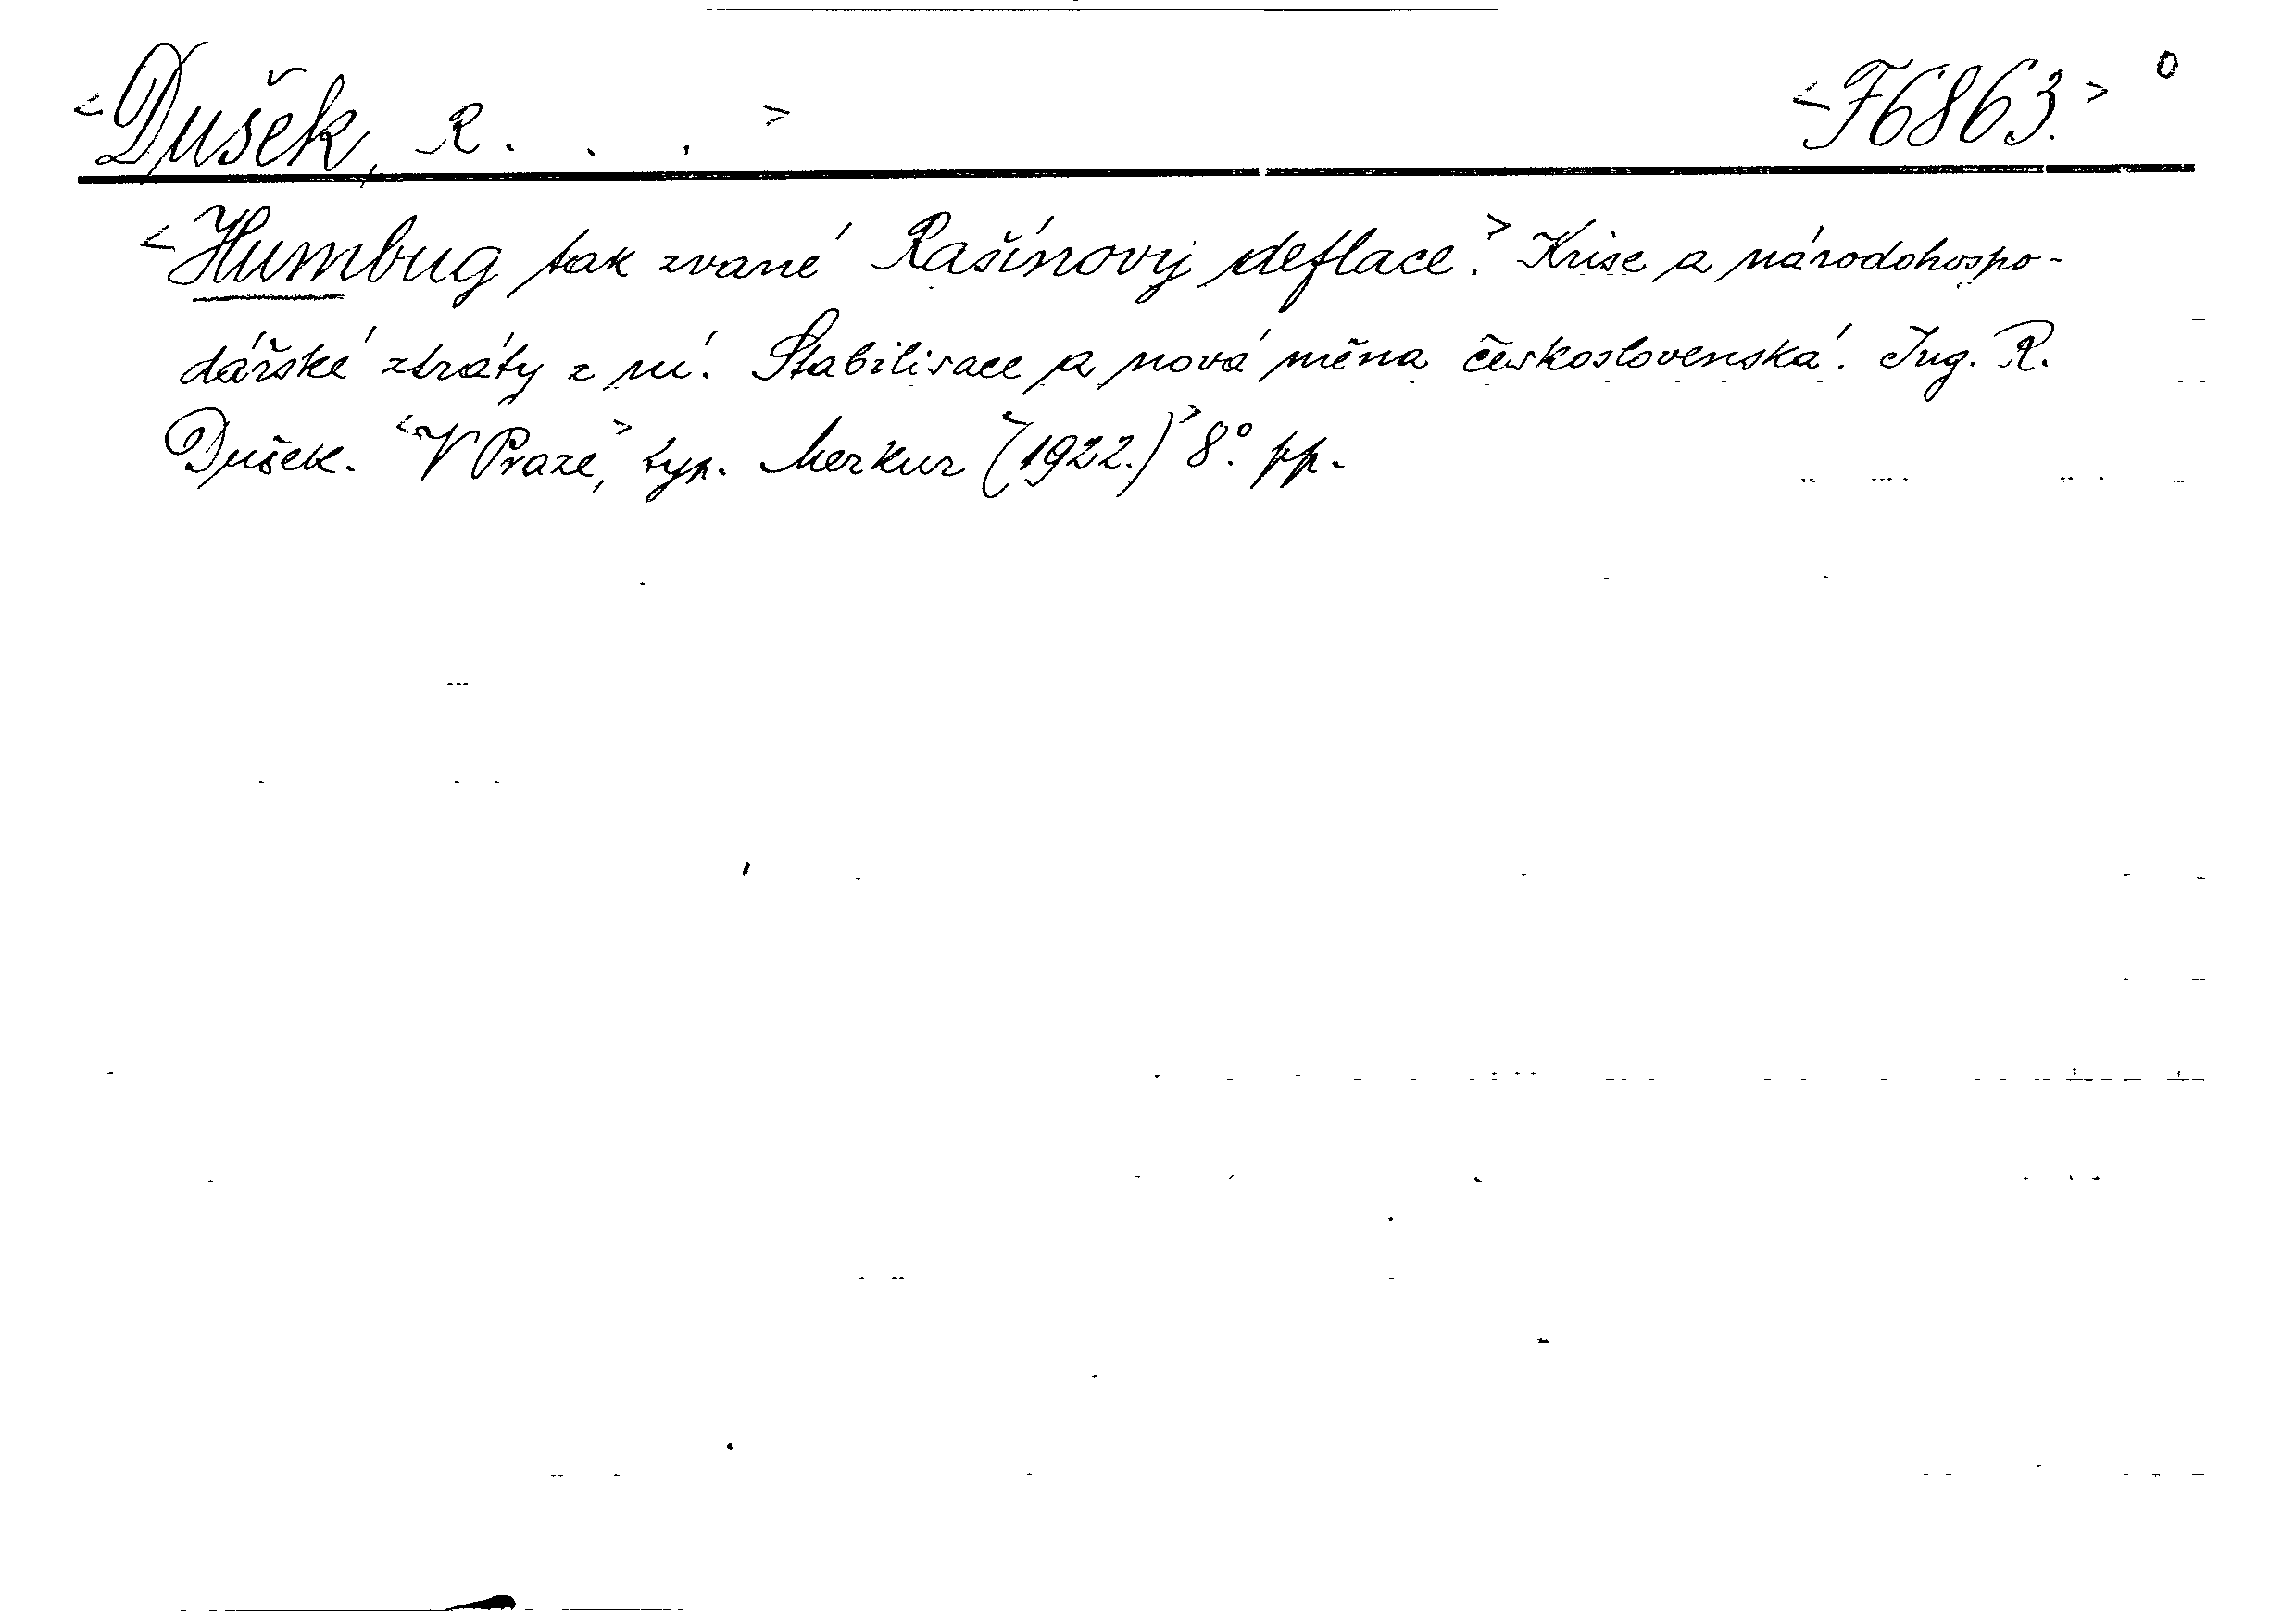 <Dušek, R. . . > <F6863.> o
<Humbug tak zvané Rašínovy deflace.> Krise a národohospo-
dářské ztráty z ní. Stabilisace a nová měna československá. Ing. R.
Dušek. <V Praze,> typ. Merkur (1922.)> 8°. pp.